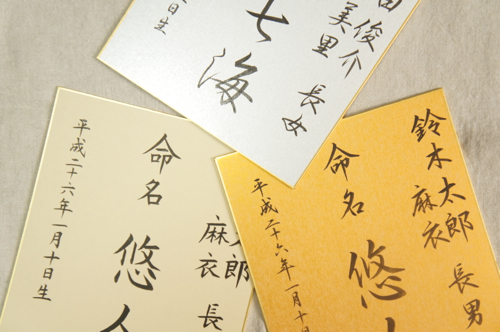 田俊介
美里 長女
七海
日生
鈴木太郎
麻衣 長男
命名
悠
平成二十六年一月十日
郎
麻衣 長
命名
悠人
平成二十六年一月十日生